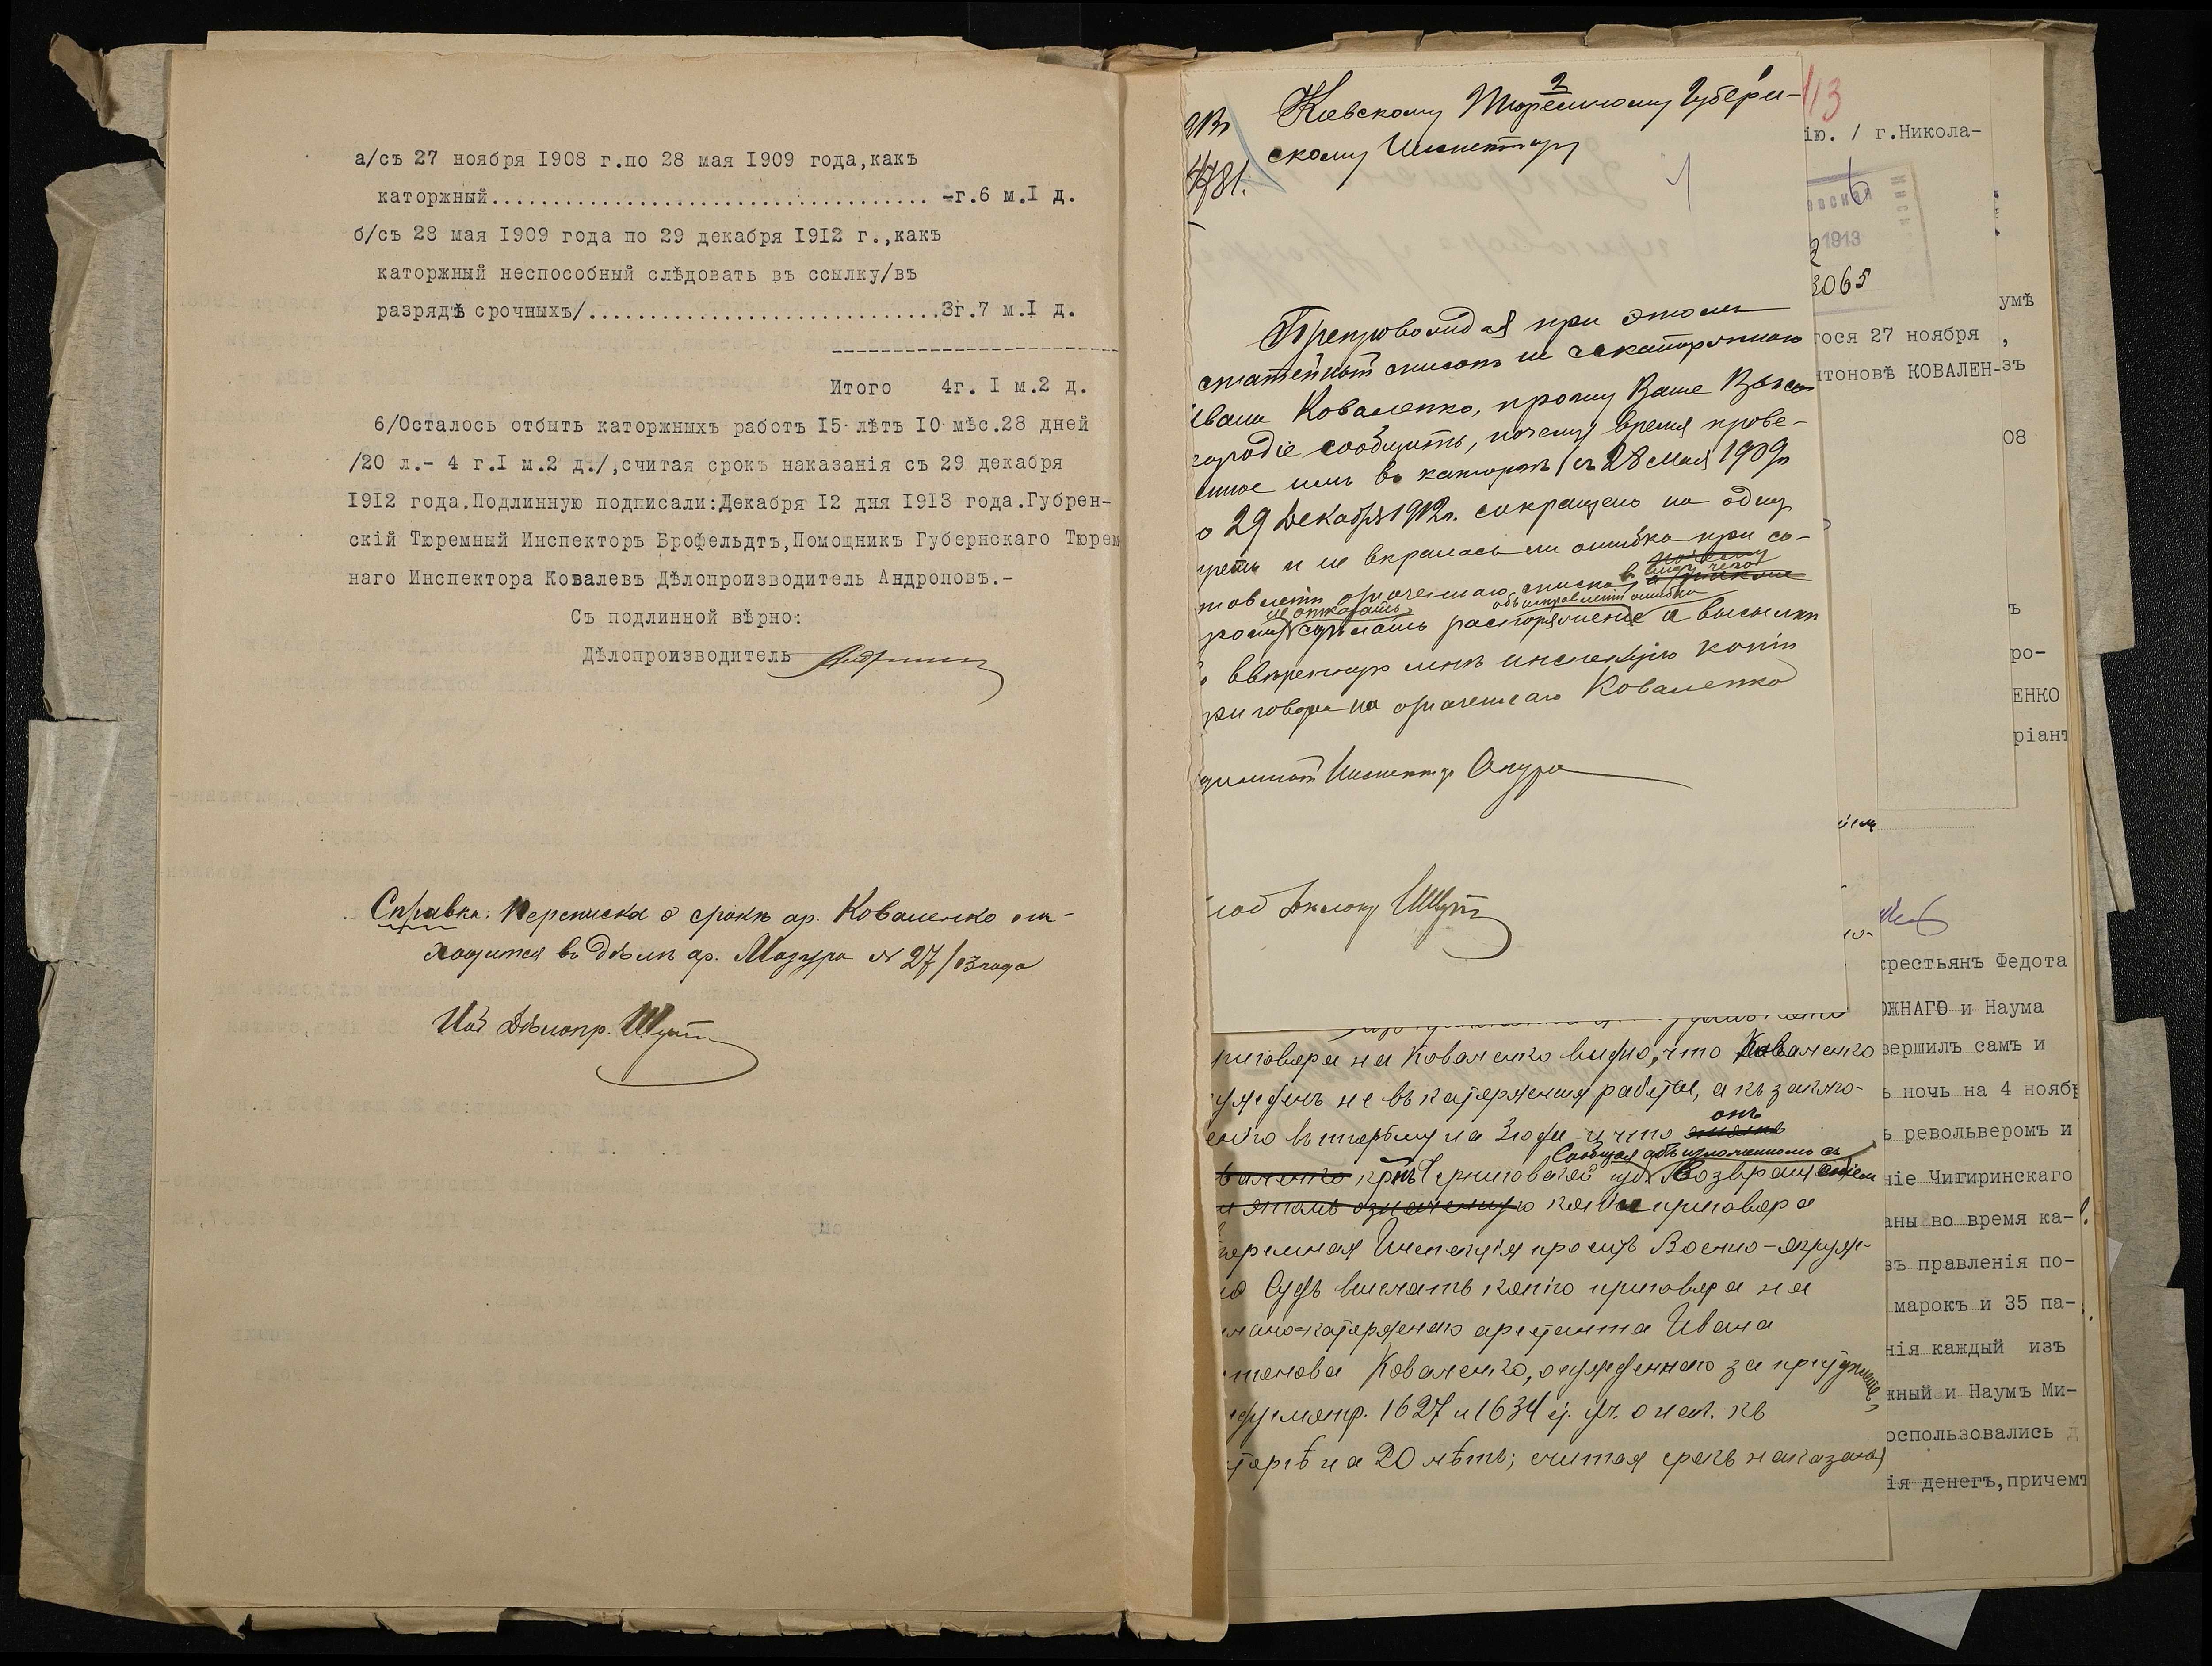 а/съ 27 ноября 1908 г.по 28 мая 1909 года,какъ
каторжный................................... -г.6 м.I д.
б/съ 28 мая 1909 года по 29 декабря 1912 г.,какъ
каторжный неспособный слѣдовать въ ссылку/въ
разрядѣ срочныхъ/............................3г.7 м.I д.
Итого 4г. I м.2 д.
6/Осталось отбыть каторжныхъ работъ I5 лѣтъ IO мѣс.28 дней
/20 л.- 4 г.I м.2 д./,считая срокъ наказанія съ 29 декабря
1912 года.Подлинную подписали:Декабря 12 дня 1913 года.Губрен-
скій Тюремный Инспекторъ Брофельдтъ,Помощникъ Губернскаго Тюрем
наго Инспектора Ковалевъ Дѣлопроизводитель Андроповъ.-
Съ подлинной вѣрно:
Дѣлопроизводитель
Справка: Переписка о срокѣ ар. Коваленко на-
ходится въ дѣлѣ ар. Мазура № 27/13 года
Дѣлопр. Шутъ
2
Кіевскому Тюремному Губерн-
скому Инспектору
Препровождая при этомъ
статейный списокъ на ссыльнокаторжнаго
Ивана Коваленко, прошу Ваше Высоко-
родіе сообщить, почему время прове-
нное имъ въ каторгѣ съ 28 Мая 1909 г.
о 29 Декабря 1912 г. сокращено на одну
треть и не вкралась ли ошибка при со-
списка въ виду чего
не отказать сдѣлать распоряженіе объ исправленіи ошибки и высылкѣ
ввѣренную мнѣ инспекцію копіи
приговора на означеннаго Коваленко
Инспекторъ
риговора на Коваленко видно, что Коваленко
ужденъ не въ каторжныя работы, а къ заклю-
енію въ тюрьму на 3 года и что онъ
кр. Черниговской губ. Сообщая объ изложенномъ съ возвращеніемъ
копіи приговора
юремная Инспекція проситъ Военно-окруж-
ой Судъ выслать копію приговора на
льнокаторжнаго арестанта Ивана
нтонова Коваленко, осужденнаго за преступленіе
едусмотр. 1627 и 1634 ст. ул. о нак. къ
торгѣ на 20 лѣтъ, считая срокъ наказанія
113
ію. / г.Никола-
1913
3065
гося 27 ноября
нтоновѣ КОВАЛЕН-
умѣ
,
зъ
08
ъ
ро-
ЕНКО
ріант
крестьянъ Федота
ОЖНАГО и Наума
вершилъ самъ и
ь ночь на 4 нояб
ь револьверомъ и
ніе Чигиринскаго
аны во время ка-
въ правленія по-
марокъ и 35 па-
нія каждый изъ
жный и Наумъ Ми-
оспользовались д
ія денегъ,причемъ